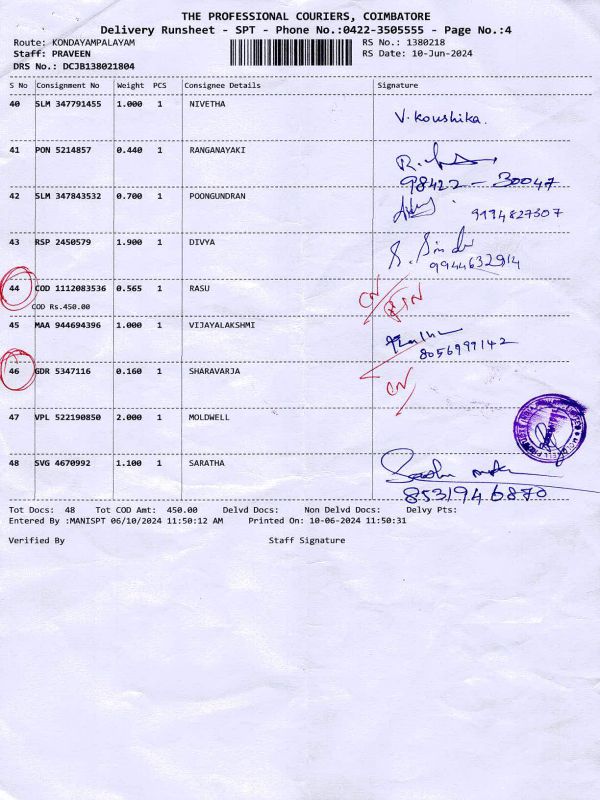 THE PROFESSIONAL COURIERS, COIMBATORE
Delivery Runsheet - SPT - Phone No.:0422-3505555 - Page No.:4
Route: KONDAYAMPALAYAM RS No.: 1380218
Staff: PRAVEEN RS Date: 10-Jun-2024
DRS No.: DCJB138021804
S No Consignment No Weight PCS Consignee Details Signature
40 SLM 347791455 1.000 1 NIVETHA V. Koushika.
41 PON 5214857 0.440 1 RANGANAYAKI
98422 - 30047
42 SLM 347843532 0.700 1 POONGUNDRAN 9194827307
43 RSP 2450579 1.900 1 DIVYA
9944632914
44 COD 1112083536 0.565 1 RASU CN
COD Rs.450.00
45 MAA 944694396 1.000 1 VIJAYALAKSHMI
8056999142
46 GDR 5347116 0.160 1 SHARAVARJA CN
47 VPL 522190850 2.000 1 MOLDWELL
48 SVG 4670992 1.100 1 SARATHA
8531946870
Tot Docs: 48 Tot COD Amt: 450.00 Delvd Docs: Non Delvd Docs: Delvy Pts:
Entered By :MANISPT 06/10/2024 11:50:12 AM Printed On: 10-06-2024 11:50:31
Verified By Staff Signature